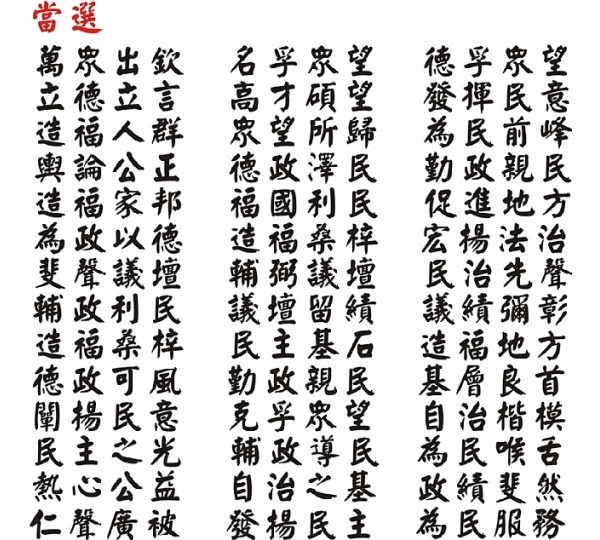 當選
萬眾出欽
立德立言
造福人群
輿論公正
造福家邦
為政以德
斐聲議壇
輔政利民
造福桑梓
德政可風
闡揚民意
民主之光
熱心公益
仁聲廣被
名孚眾望
高才碩望
眾望所歸
德政澤民
福國利民
造福桑梓
輔弼議壇
議壇留績
民主基石
勤政親民
克孚眾望
輔政導民
自治之基
發揚民主
德孚眾望
發揮民意
為民前峰
勤政親民
促進地方
宏揚法治
民治先聲
議績彌彰
造福地方
基層良首
自治楷模
為民喉舌
政績斐然
為民服務